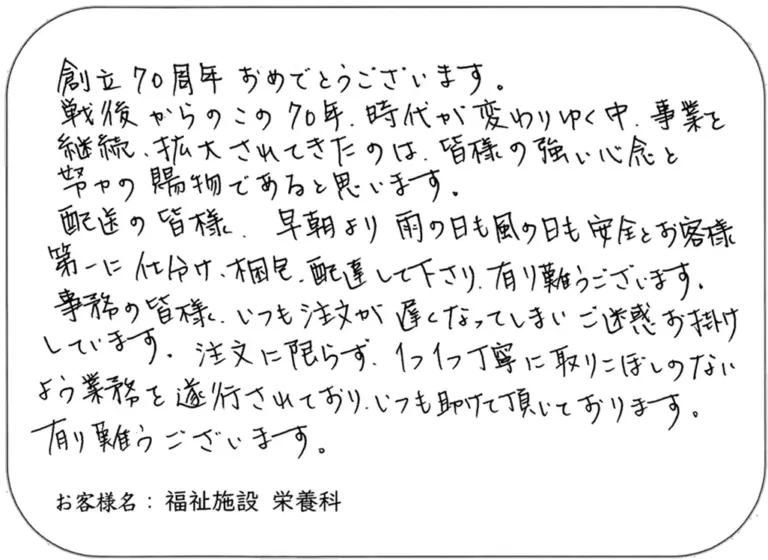 創立70周年 おめでとうございます。
戦後からのこの70年、時代が変わりゆく中、事業を
継続、拡大されてきたのは、皆様の強い心念と
努力の賜物であると思います。
配送の皆様、早朝より雨の日も風の日も安全とお客様
第一に仕分け、梱包、配達して下さり、有り難うございます。
事務の皆様、いつも注文が遅くなってしまいご迷惑お掛け
しています。注文に限らず、1つ1つ丁寧に取りこぼしのない
よう業務を遂行されており、いつも助けて頂いております。
有り難うございます。
お客様名：福祉施設 栄養科